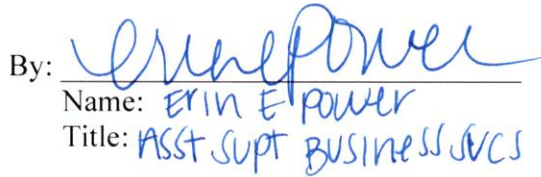 By: Erin E Power
Name: Erin E Power
Title: Asst Supt Business Svcs